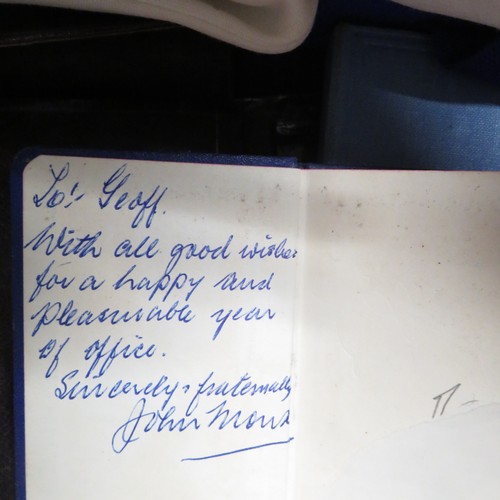 To:- Geoff.
With all good wishes
for a happy and
pleasurable year
of office.
Sincerely & fraternally
John